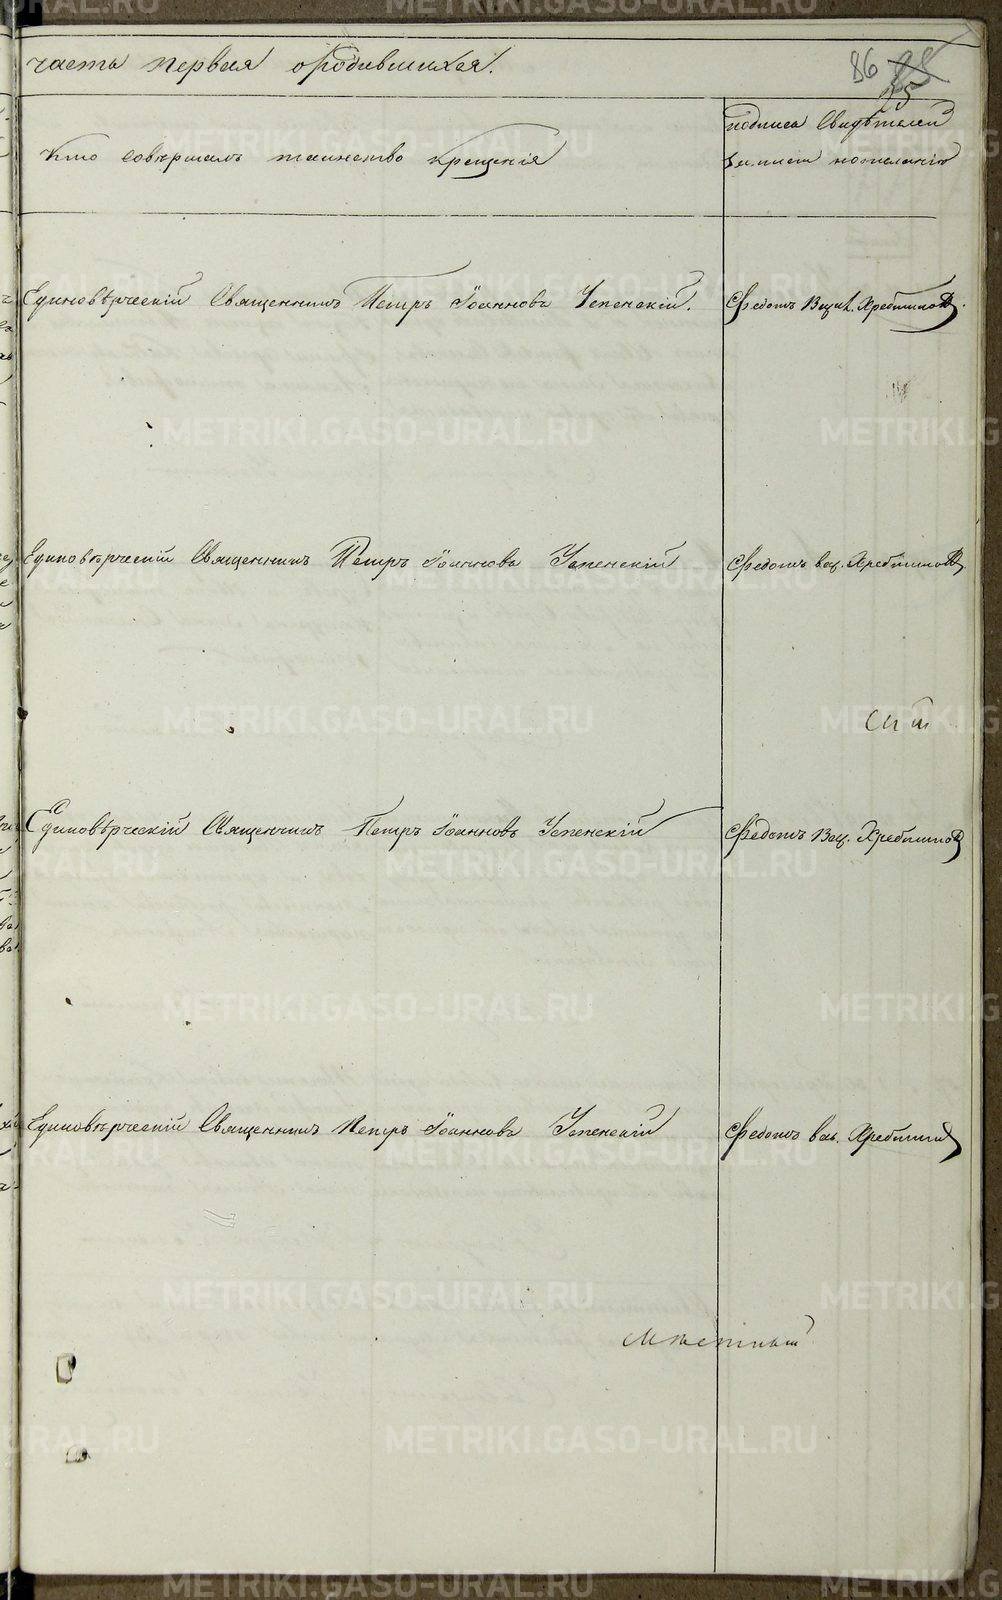 часть первая о родившихся.
86
Кто совершалъ таинство крещенія
подписа Свидѣтелей
Записи по желанію
Единовѣрческій Священникъ Петръ Іоанновъ Успенскій.
Федотъ Хребтиковъ
Единовѣрческій Священникъ Петръ Іоанновъ Успенскій
Федотъ Вас. Хребтиковъ
Единовѣрческій Священникъ Петръ Іоанновъ Успенскій
Федотъ Вас. Хребтиковъ
Единовѣрческій Священникъ Петръ Іоанновъ Успенскій
Федотъ Вас. Хребтиковъ
METRIKI.GASO-URAL.RU